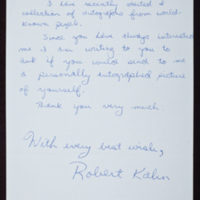 I have recently started a
collection of autographs from world-
known people.
Since you have always interested
me I am writing to you to
ask if you would send to me
a personally autographed picture
of yourself.
Thank you very much.
With every best wish,
Robert Kahn